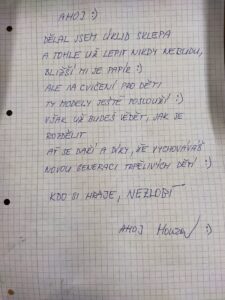 AHOJ :)
DĚLAL JSEM ÚKLID SKLEPA
A TOHLE UŽ LEPIT NIKDY NEBUDU,
BLIŽŠÍ MI JE PAPÍR :)
ALE NA CVIČENÍ PRO DĚTI
TY MODELY JEŠTĚ POSLOUŽÍ :)
VŠAK UŽ BUDEŠ VĚDĚT, JAK JE
ROZDĚLIT
AŤ SE DAŘÍ A DÍKY, ŽE VYCHOVÁVÁŠ
NOVOU GENERACI TRPĚLIVÝCH DĚTÍ :)
KDO SI HRAJE, NEZLOBÍ
AHOJ :)